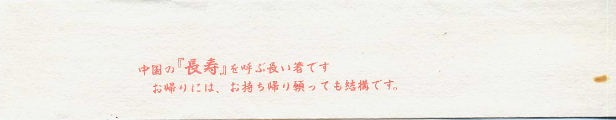 中国の『長寿』を呼ぶ長い箸です
お帰りには、お持ち帰り願っても結構です。